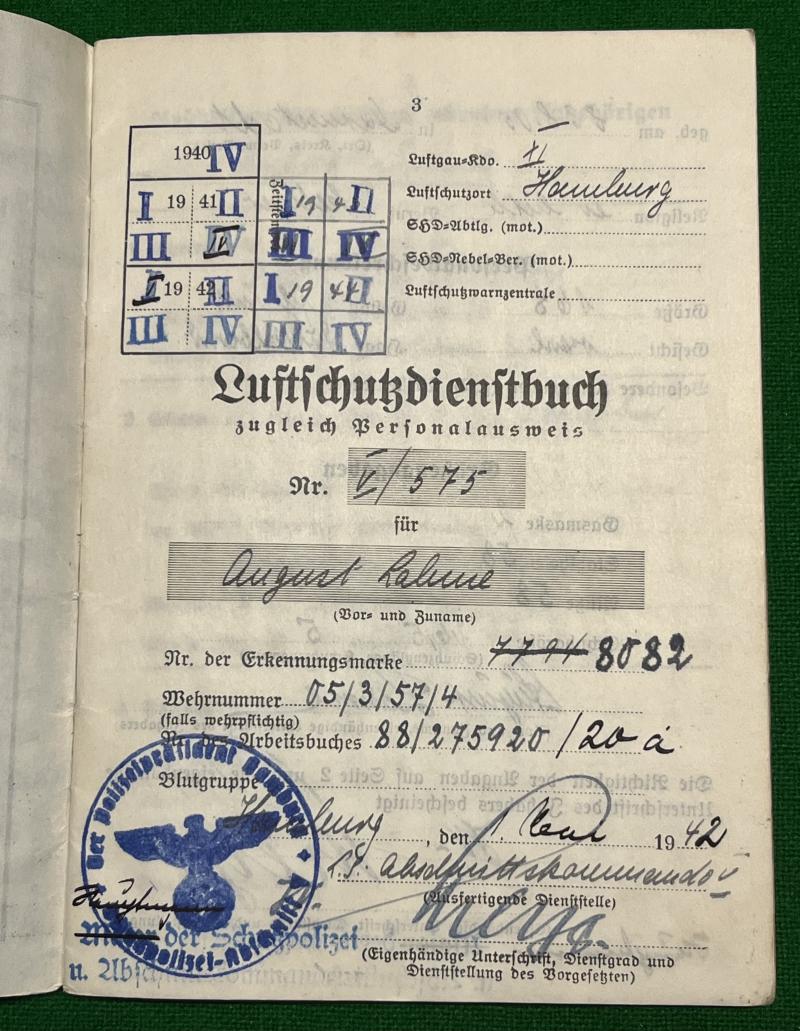 3
1940 IV
I 19 41 II
III IV
I 19 42 II
III IV
I 19 4 II
III IV
I 19 44 II
III IV
Luftgau-Kdo. XI
Luftschutzort Hamburg
SHD-Abtlg. (mot.)
SHD-Nebel-Ber. (mot.)
Luftschutzwarnzentrale
Luftschutzdienstbuch
zugleich Personalausweis
Nr. V/575
für
August
(Vor- und Zuname)
Nr. der Erkennungsmarke 7794 8082
Wehrnummer 05/3/57/4
(falls wehrpflichtig)
Nr. des Arbeitsbuches 88/275920/20 a
Blutgruppe
Hamburg, den 1. 1942
L.S. Abschnittskommando V
(Ausfertigende Dienststelle)
Der Polizeipräsident Hamburg
Hauptmann
Major der Schutzpolizei
u. Abschnittskommandeur
(Eigenhändige Unterschrift, Dienstgrad und
Dienststellung des Vorgesetzten)